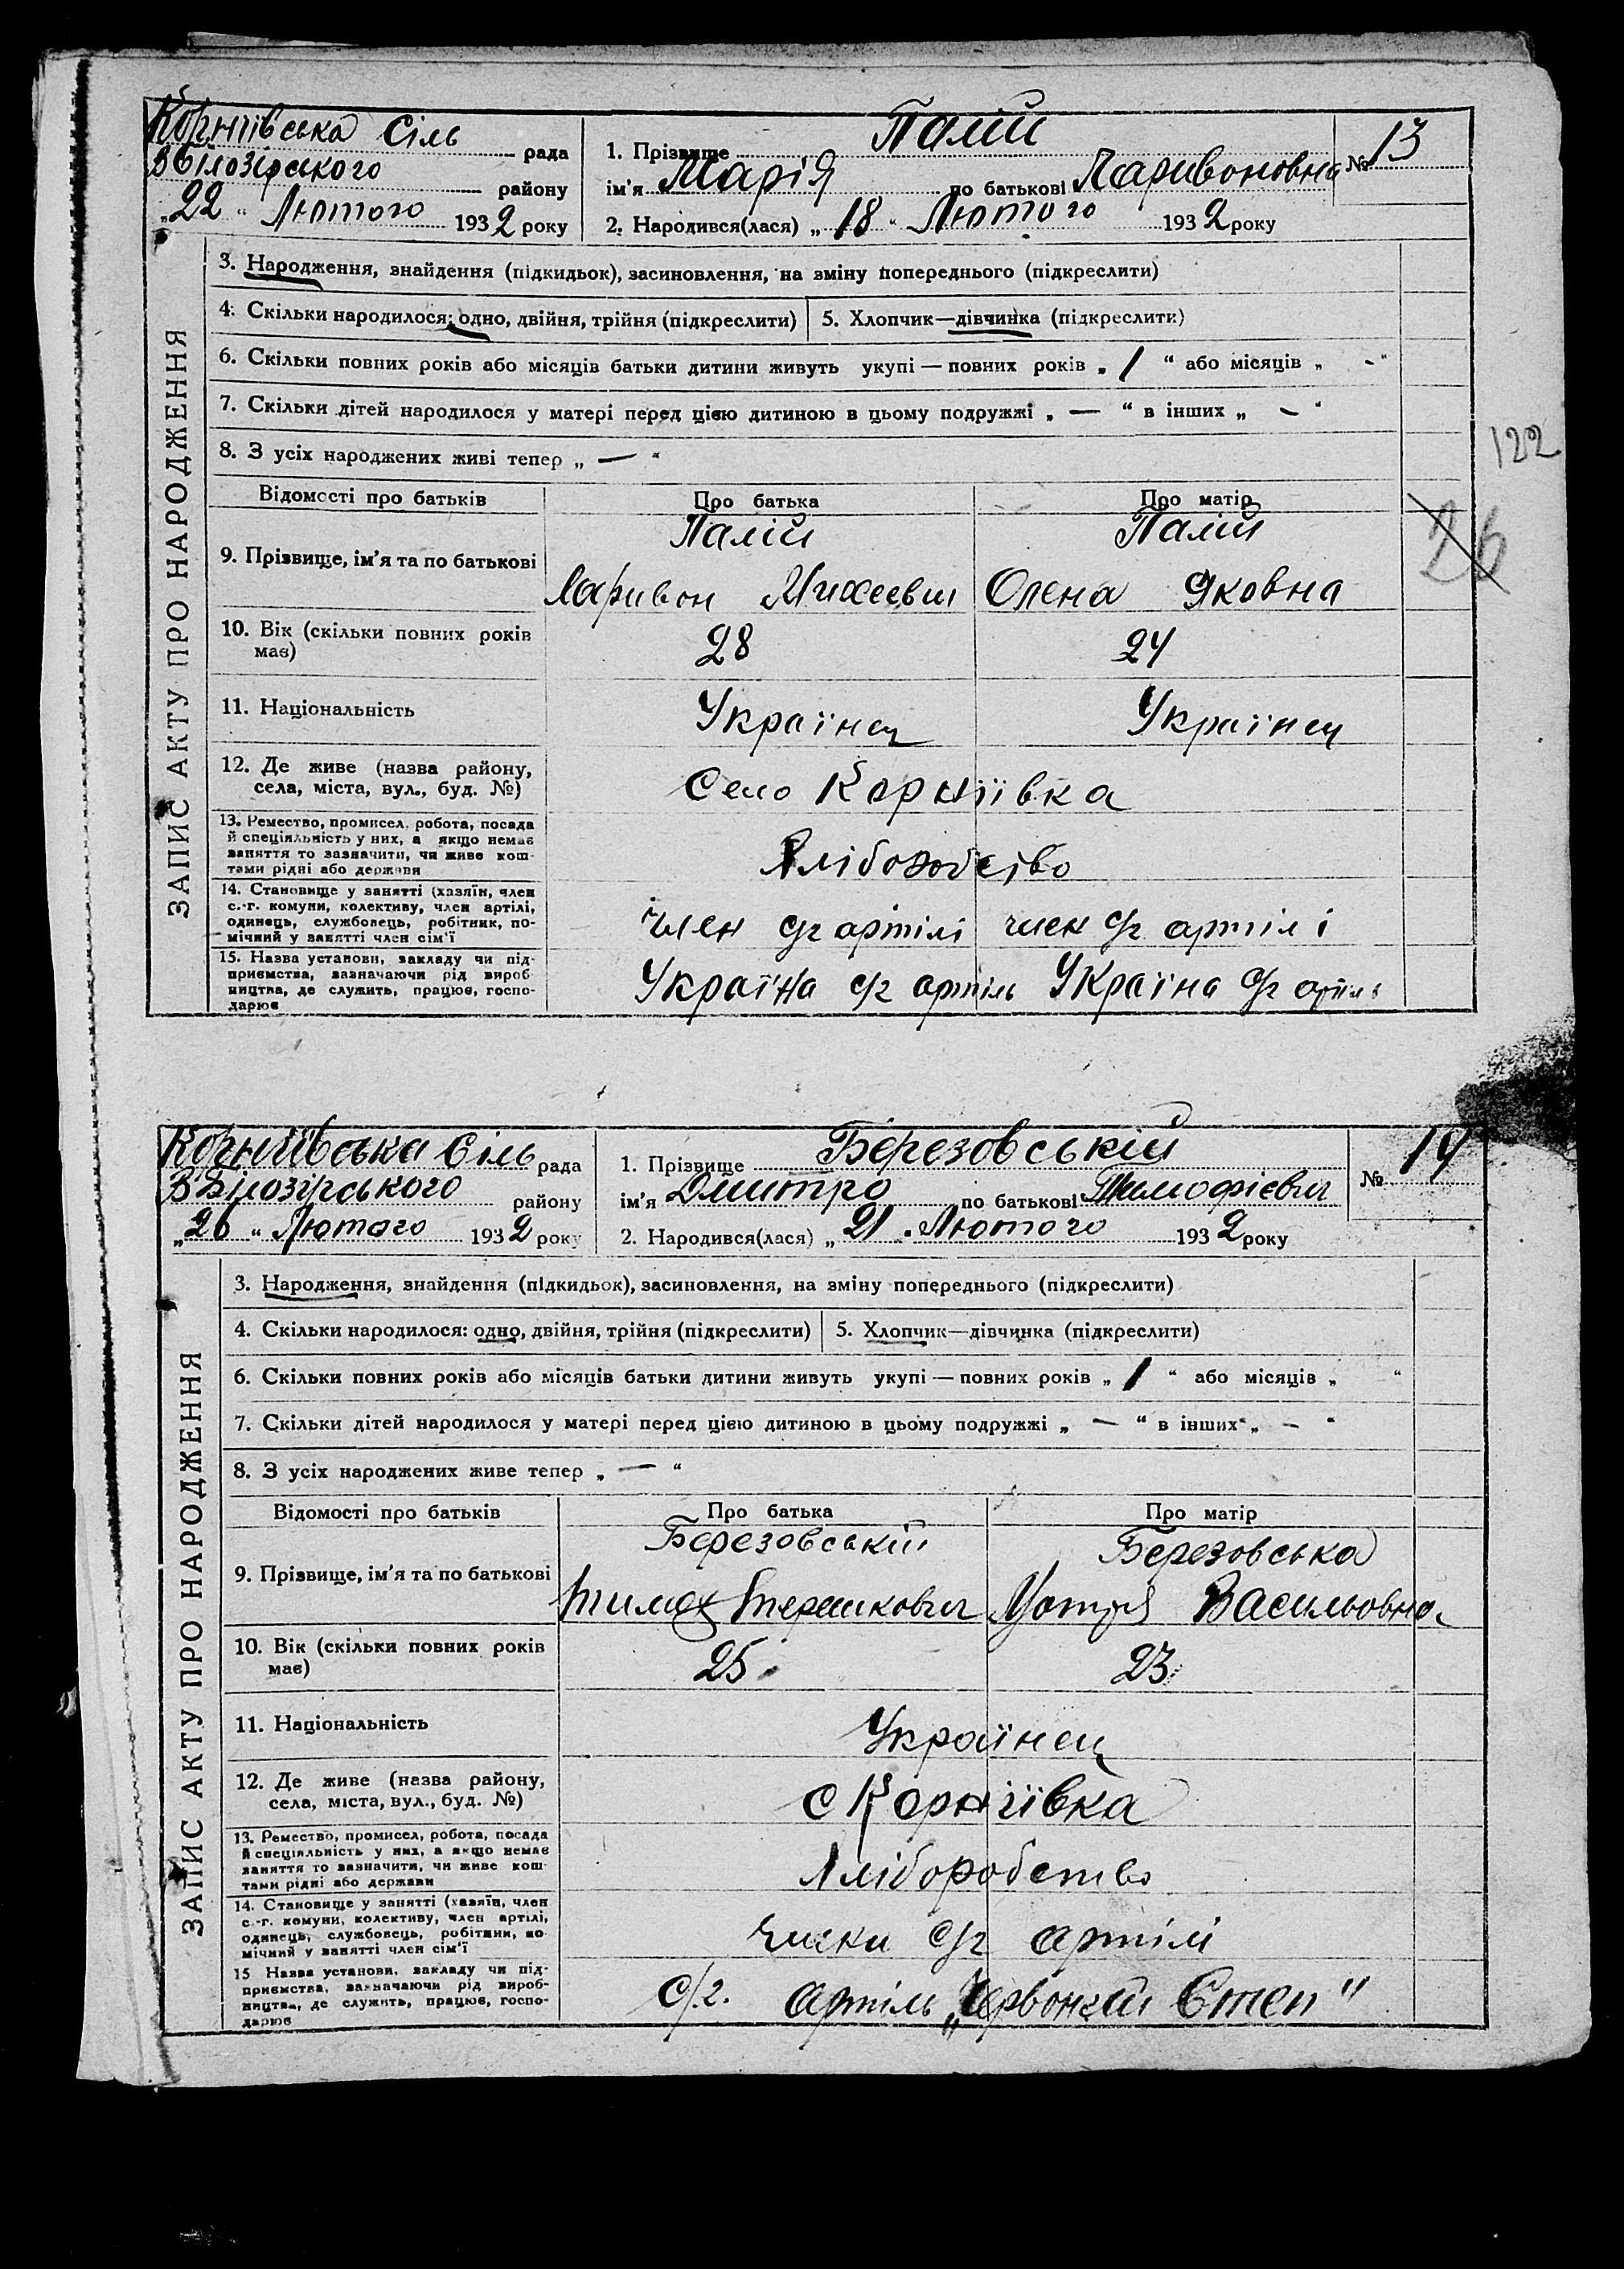 Корніївська Сіль рада
ВБілозірського району
„22“ Лютого 1932 року
1. Прізвище Палій
ім'я Марія по батькові Ларивоновна
№ 13
2. Народився(лася) „18“ Лютого 1932 року
ЗАПИС АКТУ ПРО НАРОДЖЕННЯ
3. Народження, знайдення (підкидьок), засиновлення, на зміну попереднього (підкреслити)
4. Скільки народилося: одно, двійня, трійня (підкреслити) 5. Хлопчик—дівчинка (підкреслити)
6. Скільки повних років або місяців батьки дитини живуть укупі — повних років „ 1 “ або місяців „ - “
7. Скільки дітей народилося у матері перед цією дитиною в цьому подружжі „ — “ в інших „ — “
8. З усіх народжених живі тепер „ — “
122
26
Відомості про батьків Про батька Про матір
9. Прізвище, ім'я та по батькові
Палій Палій
Ларивон Михеевич Олена Яковна
10. Вік (скільки повних років
має)
28 24
11. Національність Українец Українец
12. Де живе (назва району,
села, міста, вул., буд. №)
Село Корніївка
13. Ремество, промисел, робота, посада
й спеціяльність у них, а якщо немає
заняття то зазначити, чи живе кош-
тами рідні або держави
Хліборобство
14. Становище у занятті (хазяїн, член
с.-г. комуни, колективу, член артілі,
одинець, службовець, робітник, по-
мічний у занятті член сім'ї
член с/г артілі член с/г артілі
15. Назва установи, закладу чи під-
приємства, зазначаючи рід вироб-
ництва, де служить, працює, госпо-
дарює
Україна с/г артіль Україна с/г артіль
Корніївська Сіль рада
ВБілозірського району
„26“ Лютого 1932 року
1. Прізвище Березовській
ім'я Дмитро по батькові Тимофієвич
№ 14
2. Народився(лася) „21. Лютого 1932 року
ЗАПИС АКТУ ПРО НАРОДЖЕННЯ
3. Народження, знайдення (підкидьок), засиновлення, на зміну попереднього (підкреслити)
4. Скільки народилося: одно, двійня, трійня (підкреслити) 5. Хлопчик—дівчинка (підкреслити)
6. Скільки повних років або місяців батьки дитини живуть укупі — повних років „ 1 “ або місяців „ “
7. Скільки дітей народилося у матері перед цією дитиною в цьому подружжі „ — “ в інших „ — “
8. З усіх народжених живе тепер „ — “
Відомості про батьків Про батька Про матір
9. Прізвище, ім'я та по батькові
Березовській Березовська
Васильовна
10. Вік (скільки повних років
має)
25 23
11. Національність Українец
12. Де живе (назва району,
села, міста, вул., буд. №)
с Корніївка
13. Ремество, промисел, робота, посада
й спеціяльність у них, а якщо немає
заняття то зазначити, чи живе кош-
тами рідні або держави
Хліборобство
14. Становище у занятті (хазяїн, член
с.-г. комуни, колективу, член артілі,
одинець, службовець, робітник, по-
мічний у занятті член сім'ї
члени с/г артілі
15 Назва установи, закладу чи під-
приємства, зазначаючи рід вироб-
ництва, де служить, працює, госпо-
дарює
с/г. артіль „Червоний Степ"